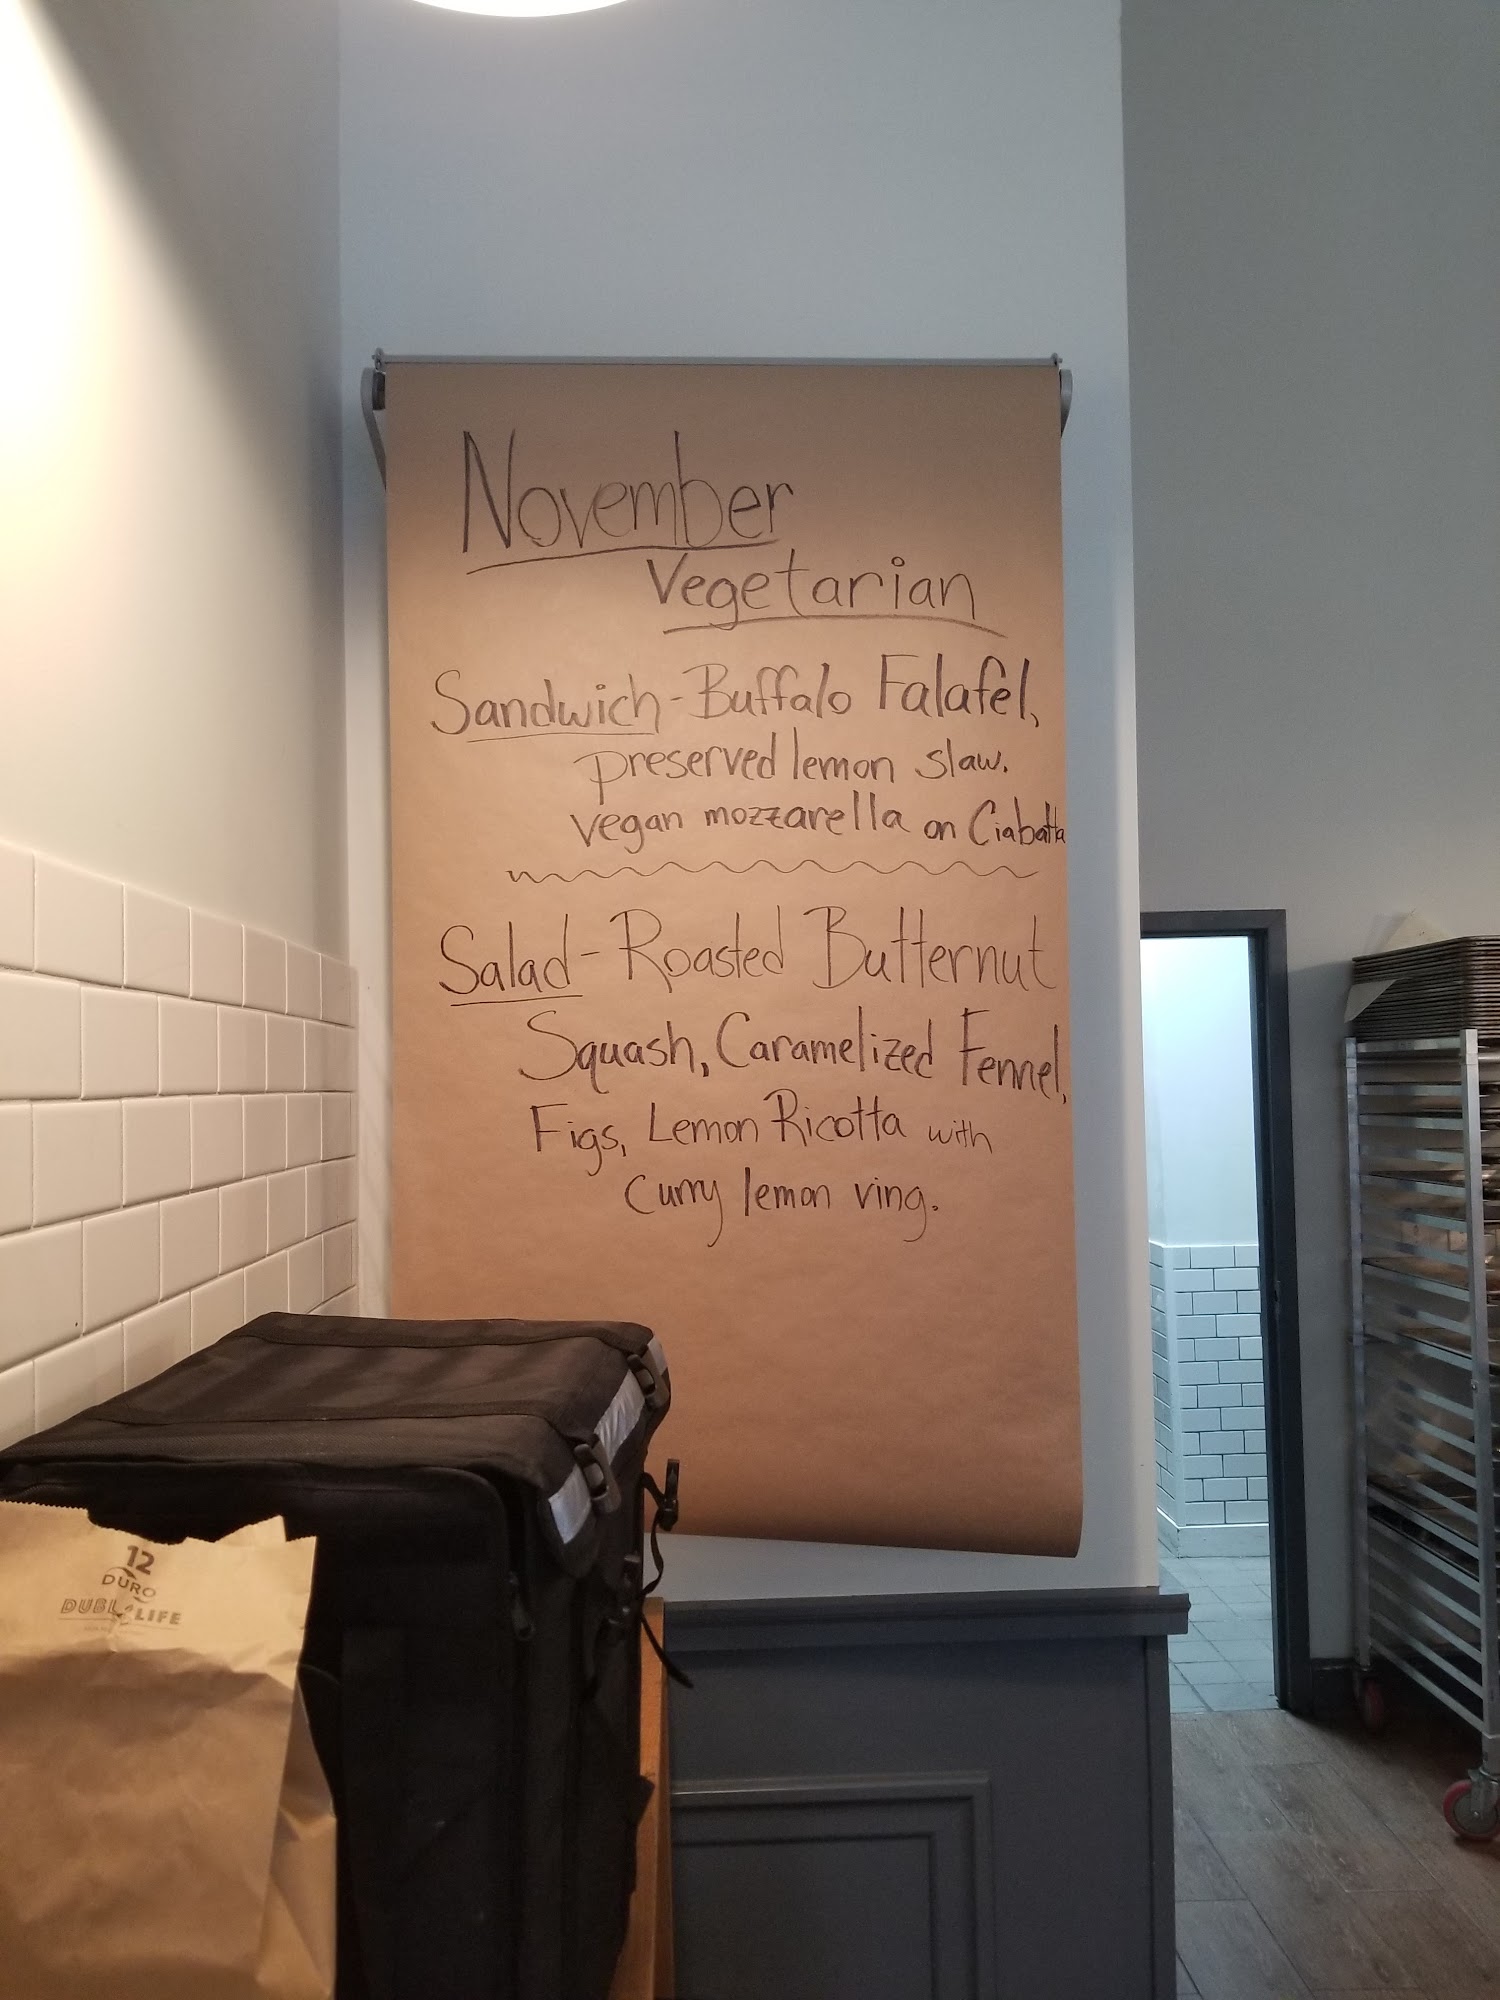 November
Vegetarian
Sandwich - Buffalo Falafel,
preserved lemon slaw.
vegan mozzarella on Ciabatta
Salad - Roasted Butternut
Squash, Caramelized Fennel,
Figs, Lemon Ricotta with
Curry lemon ving.
12
DURO
DUBL LIFE